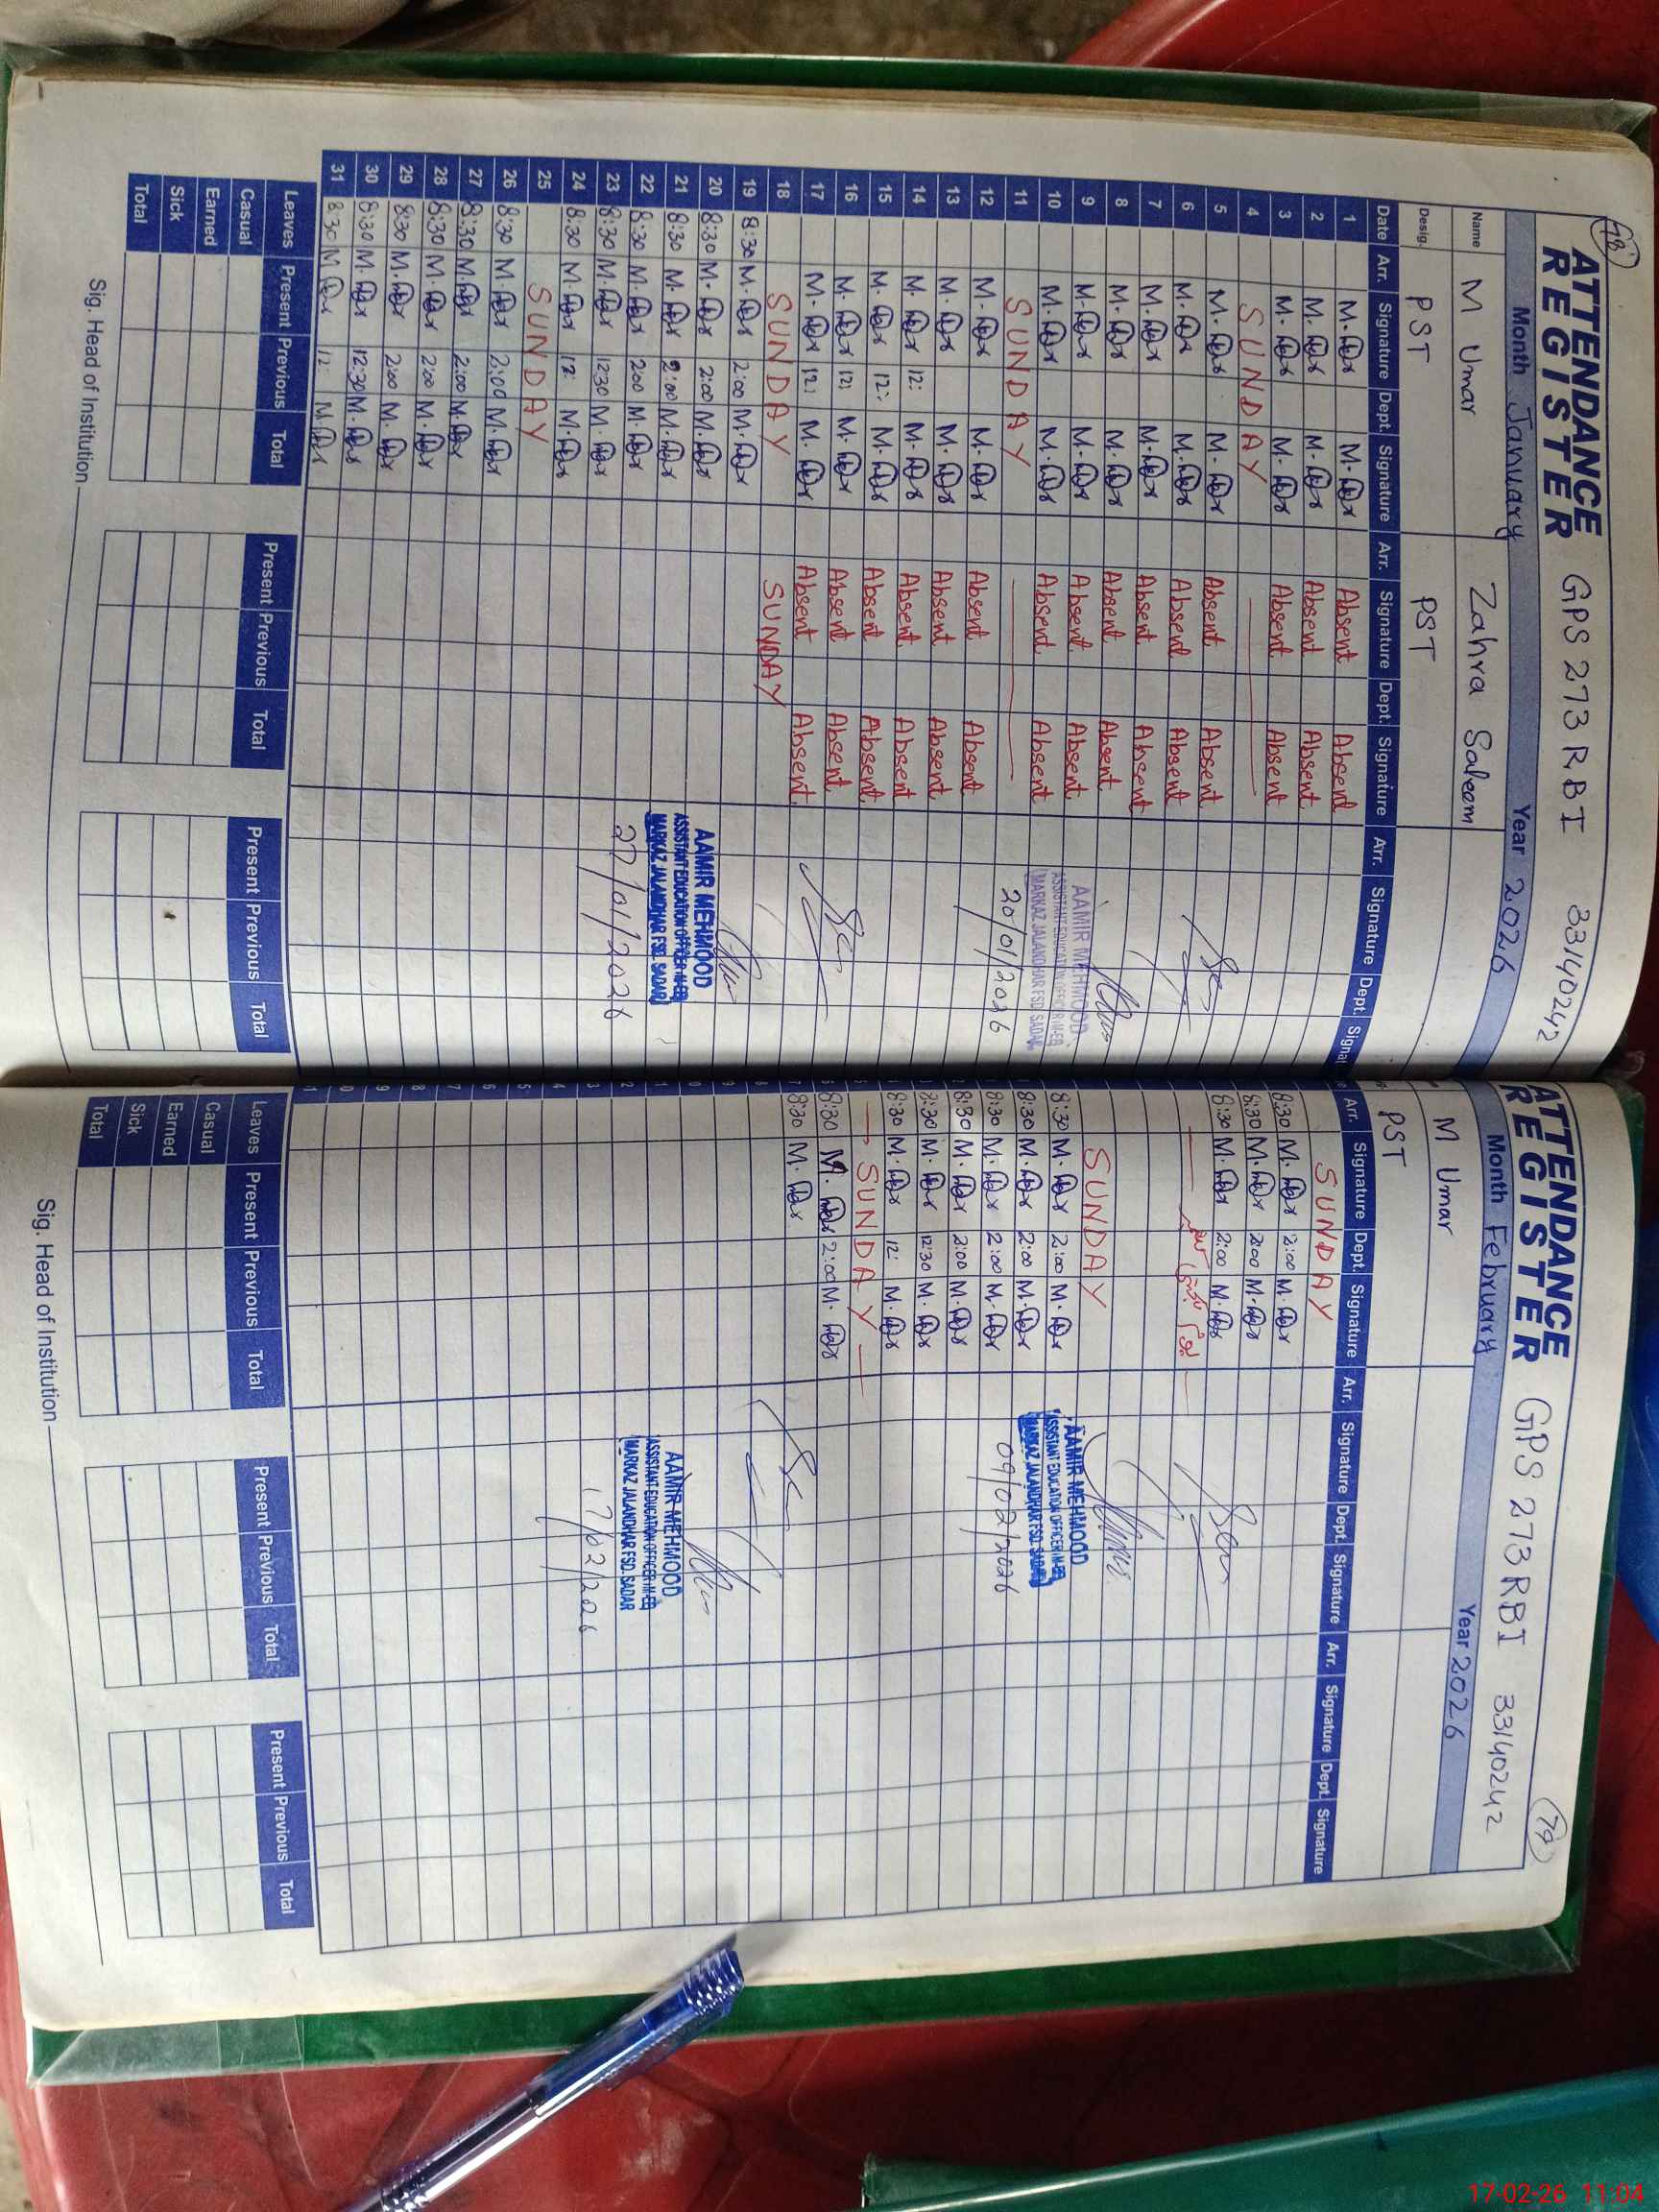 78
ATTENDANCE REGISTER GPS 273 RBI 33140242
Month January Year 2026
Name M Umar Zahra Saleem
Desig. PST PST
Date Arr. Signature Dept. Signature Arr. Signature Dept. Signature Arr. Signature Dept. Signat
1 Absent Absent
2 Absent Absent
3 Absent Absent
4 SUNDAY
5 Absent Absent
6 Absent Absent
7 Absent Absent
8 Absent Absent
9 Absent Absent
10 Absent Absent
11 SUNDAY
12 Absent Absent
13 Absent Absent
14 12: Absent Absent
15 12: Absent Absent
16 12: Absent Absent
17 12: Absent Absent
18 SUNDAY SUNDAY
19 8:30 2:00
20 8:30 2:00
21 8:30 2:00
22 8:30 2:00
23 8:30 12:30
24 8:30 12:
25 SUNDAY
26 8:30 2:00
27 8:30 2:00
28 8:30 2:00
29 8:30 2:00
30 8:30 12:30
31 8:30 12:
AAMIR MEHMOOD
ASSISTANT EDUCATION OFFICER M-EE
MARKAZ JALANDHAR FSD. SADAR
20/01/2026
AAMIR MEHMOOD
ASSISTANT EDUCATION OFFICER M-EE
MARKAZ JALANDHAR FSD. SADAR
27/01/2026
Leaves Present Previous Total Present Previous Total Present Previous Total
Casual
Earned
Sick
Total
Sig. Head of Institution
79
ATTENDANCE REGISTER GPS 273 RBI 33140242
Month February Year 2026
M Umar
PST
Arr. Signature Dept. Signature Arr. Signature Dept. Signature Arr. Signature Dept. Signature
SUNDAY
8:30 2:00
8:30 2:00
8:30 2:00
SUNDAY
8:30 2:00
8:30 2:00
8:30 2:00
8:30 2:00
8:30 12:30
8:30 12:
SUNDAY
8:30 2:00
8:30
AAMIR MEHMOOD
ASSISTANT EDUCATION OFFICER M-EE
MARKAZ JALANDHAR FSD. SADAR
09/02/2026
AAMIR MEHMOOD
ASSISTANT EDUCATION OFFICER M-EE
MARKAZ JALANDHAR FSD. SADAR
17/02/2026
Leaves Present Previous Total Present Previous Total Present Previous Total
Casual
Earned
Sick
Total
Sig. Head of Institution
17-02-26 11:04